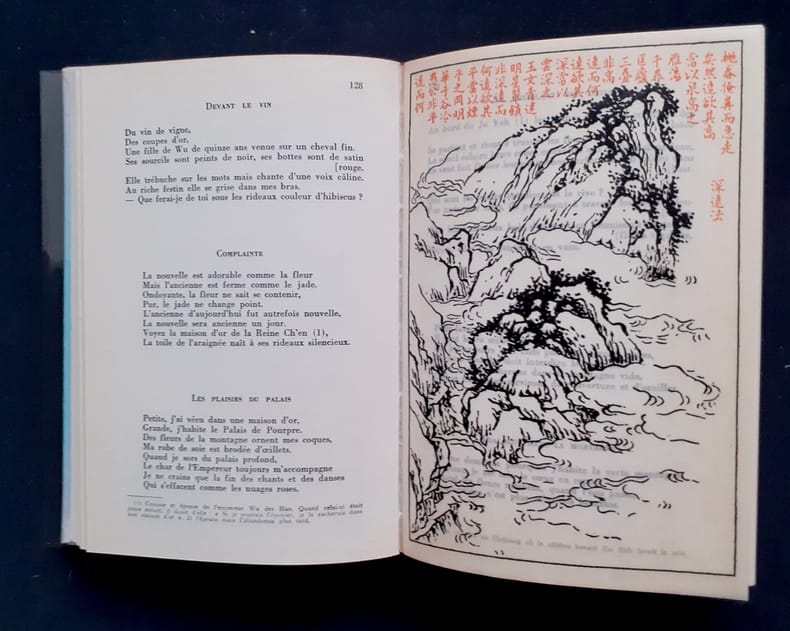 128
DEVANT LE VIN
Du vin de vigne,
Des coupes d'or,
Une fille de Wu de quinze ans venue sur un cheval fin.
Ses sourcils sont peints de noir, ses bottes sont de satin
[rouge.
Elle trébuche sur les mots mais chante d'une voix câline.
Au riche festin elle se grise dans mes bras.
— Que ferai-je de toi sous les rideaux couleur d'hibiscus ?
COMPLAINTE
La nouvelle est adorable comme la fleur
Mais l'ancienne est ferme comme le jade.
Ondoyante, la fleur ne sait se contenir,
Pur, le jade ne change point.
L'ancienne d'aujourd'hui fut autrefois nouvelle,
La nouvelle sera ancienne un jour.
Voyez la maison d'or de la Reine Ch'en (1),
La toile de l'araignée naît à ses rideaux silencieux.
LES PLAISIRS DU PALAIS
Petite, j'ai vécu dans une maison d'or,
Grande, j'habite le Palais de Pourpre.
Des fleurs de la montagne ornent mes coques,
Ma robe de soie est brodée d'œillets.
Quand je sors du palais profond,
Le char de l'Empereur toujours m'accompagne
Je ne crains que la fin des chants et des danses
Qui s'effacent comme les nuages roses.
(1) Cousine et épouse de l'empereur Wu des Han. Quand celui-ci était
jeune enfant, il disait d'elle : « Si je pouvais l'épouser, je la cacherais dans
une maison d'or ». Il l'épousa mais l'abandonna plus tard.
矣然遠欲其高
當以泉高之
雁蕩
千尋
匡廬
三疊
非高
遠而何
遠欲其
深當以
雲深之
玉女青
明星車箱
非深遠而
何遠欲其
平當以煙
平之岡明
華子谷
非平
遠而何
深遠法